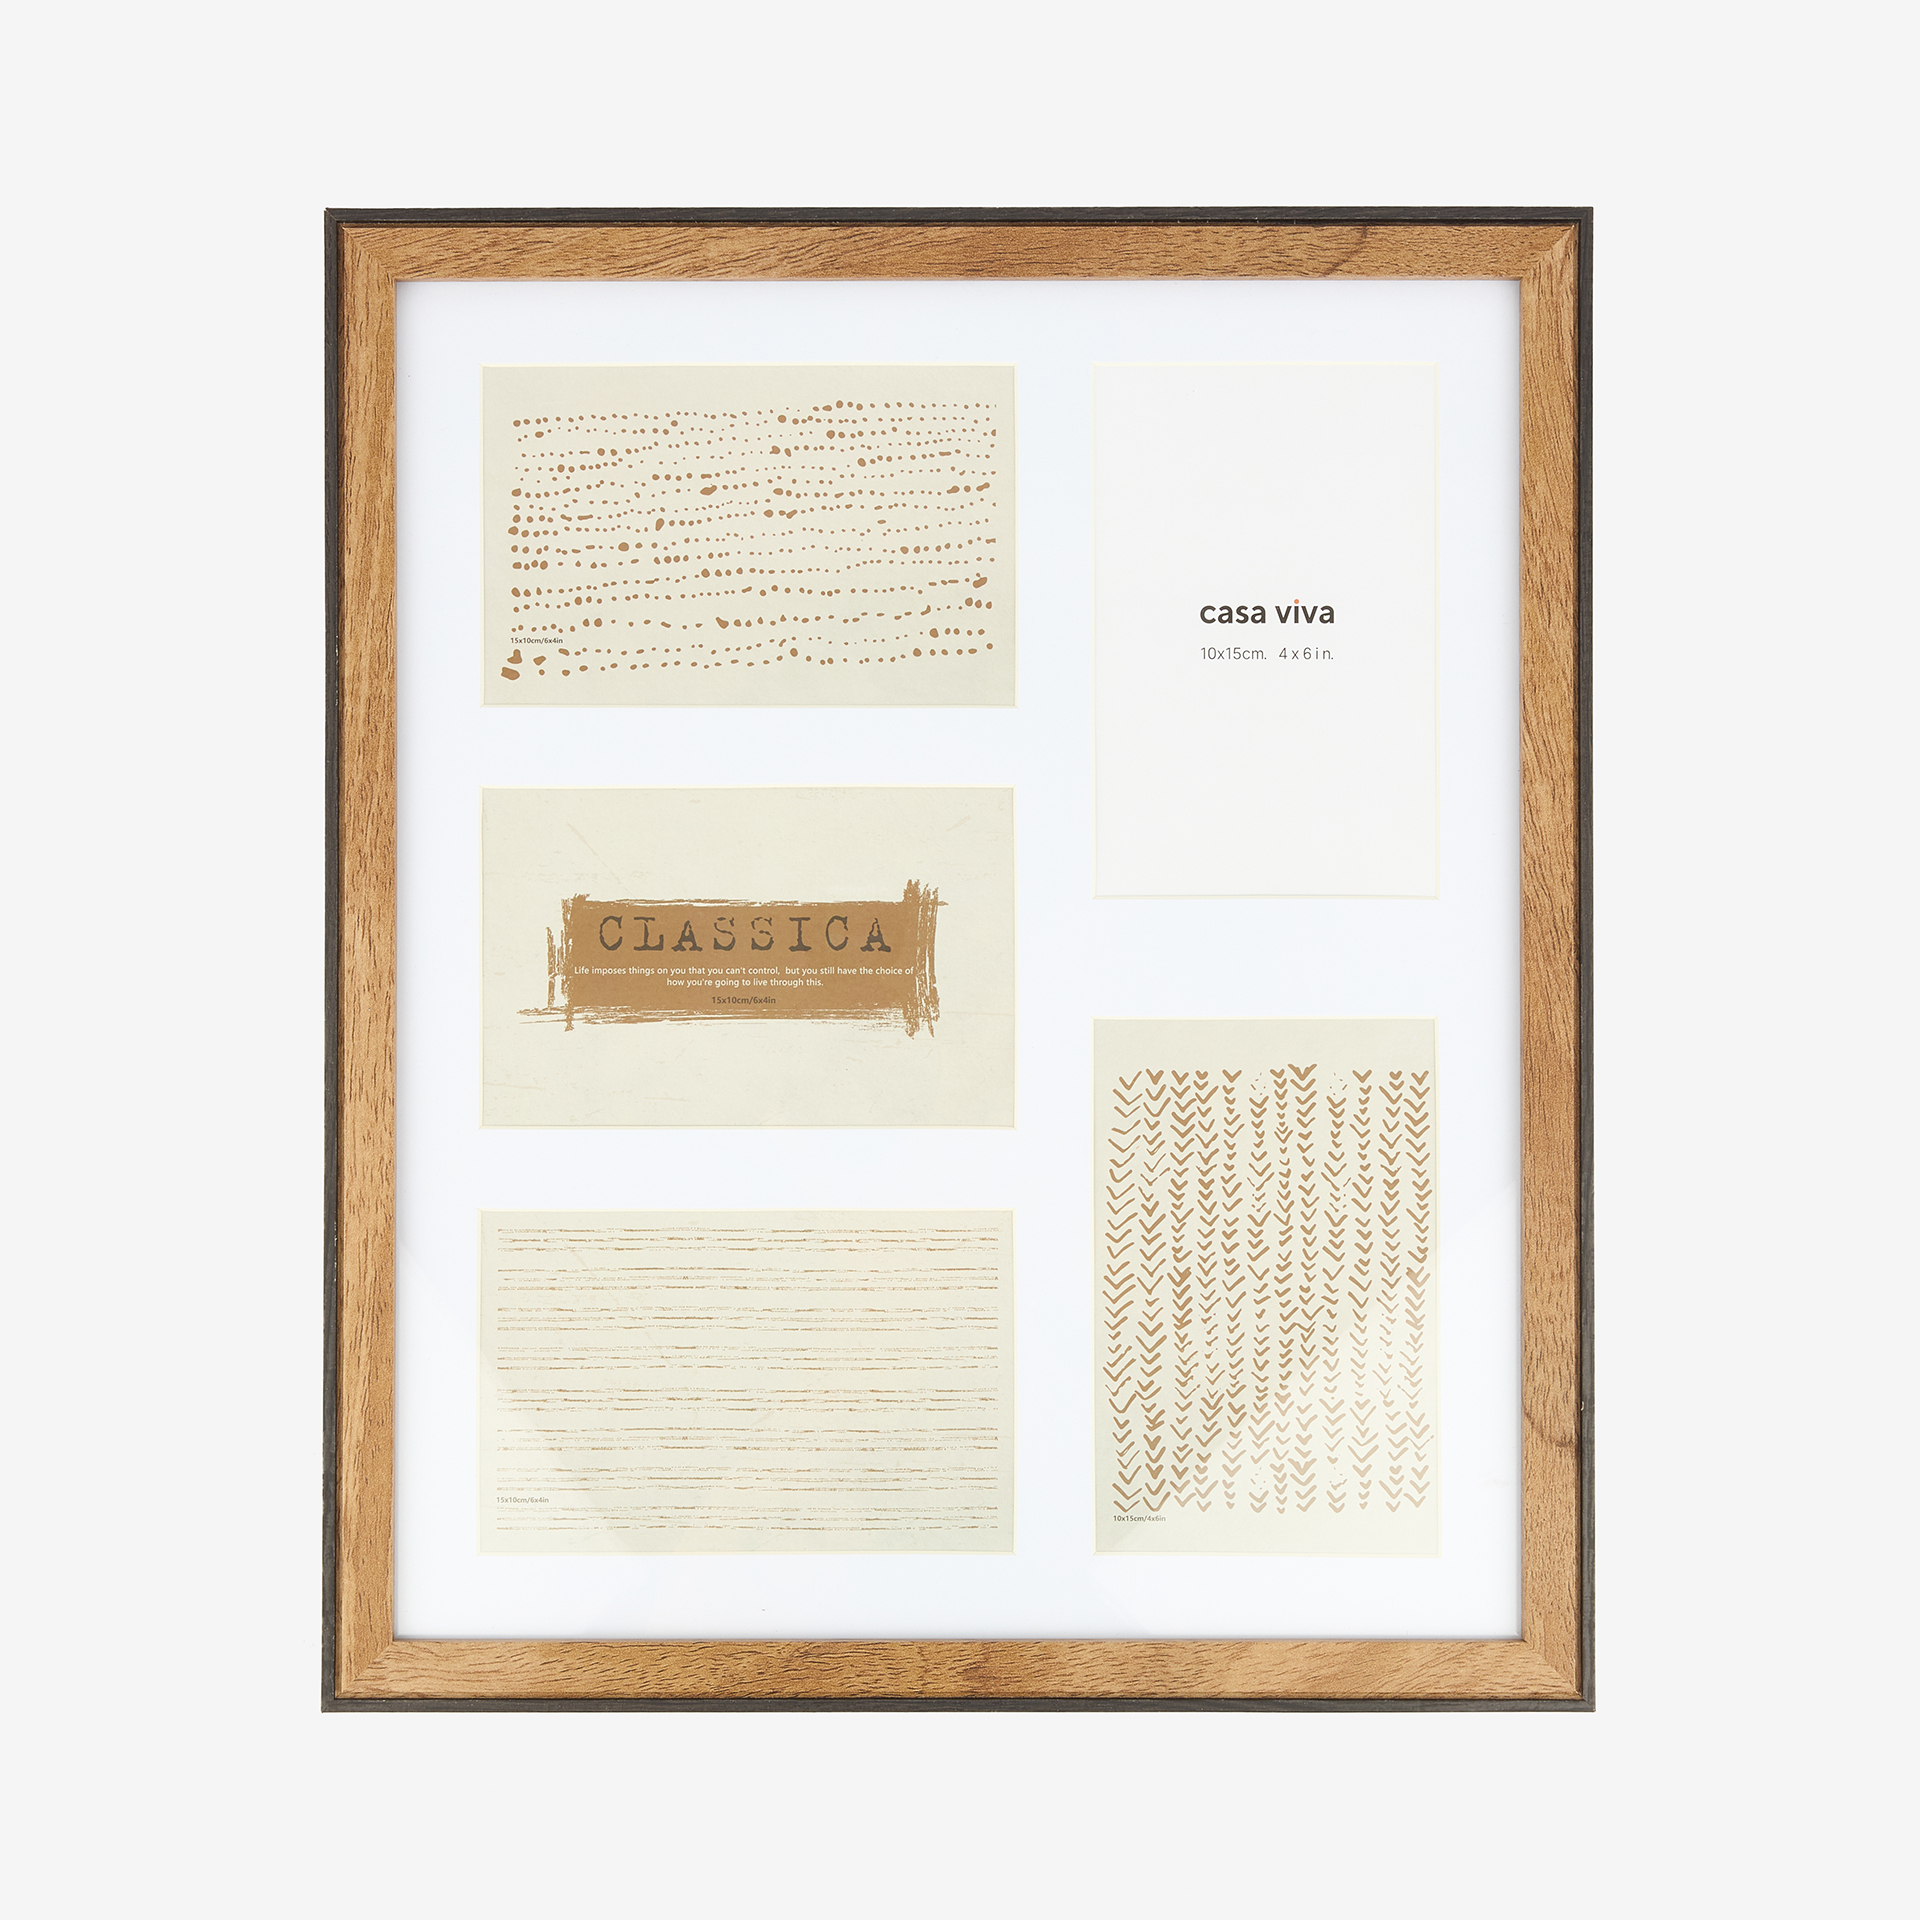 15x10cm/6x4in
casa viva
10x15cm. 4 x 6 in.
CLASSICA
Life imposes things on you that you can't control, but you still have the choice of
how you're going to live through this.
15x10cm/6x4in
15x10cm/6x4in
10x15cm/4x6in